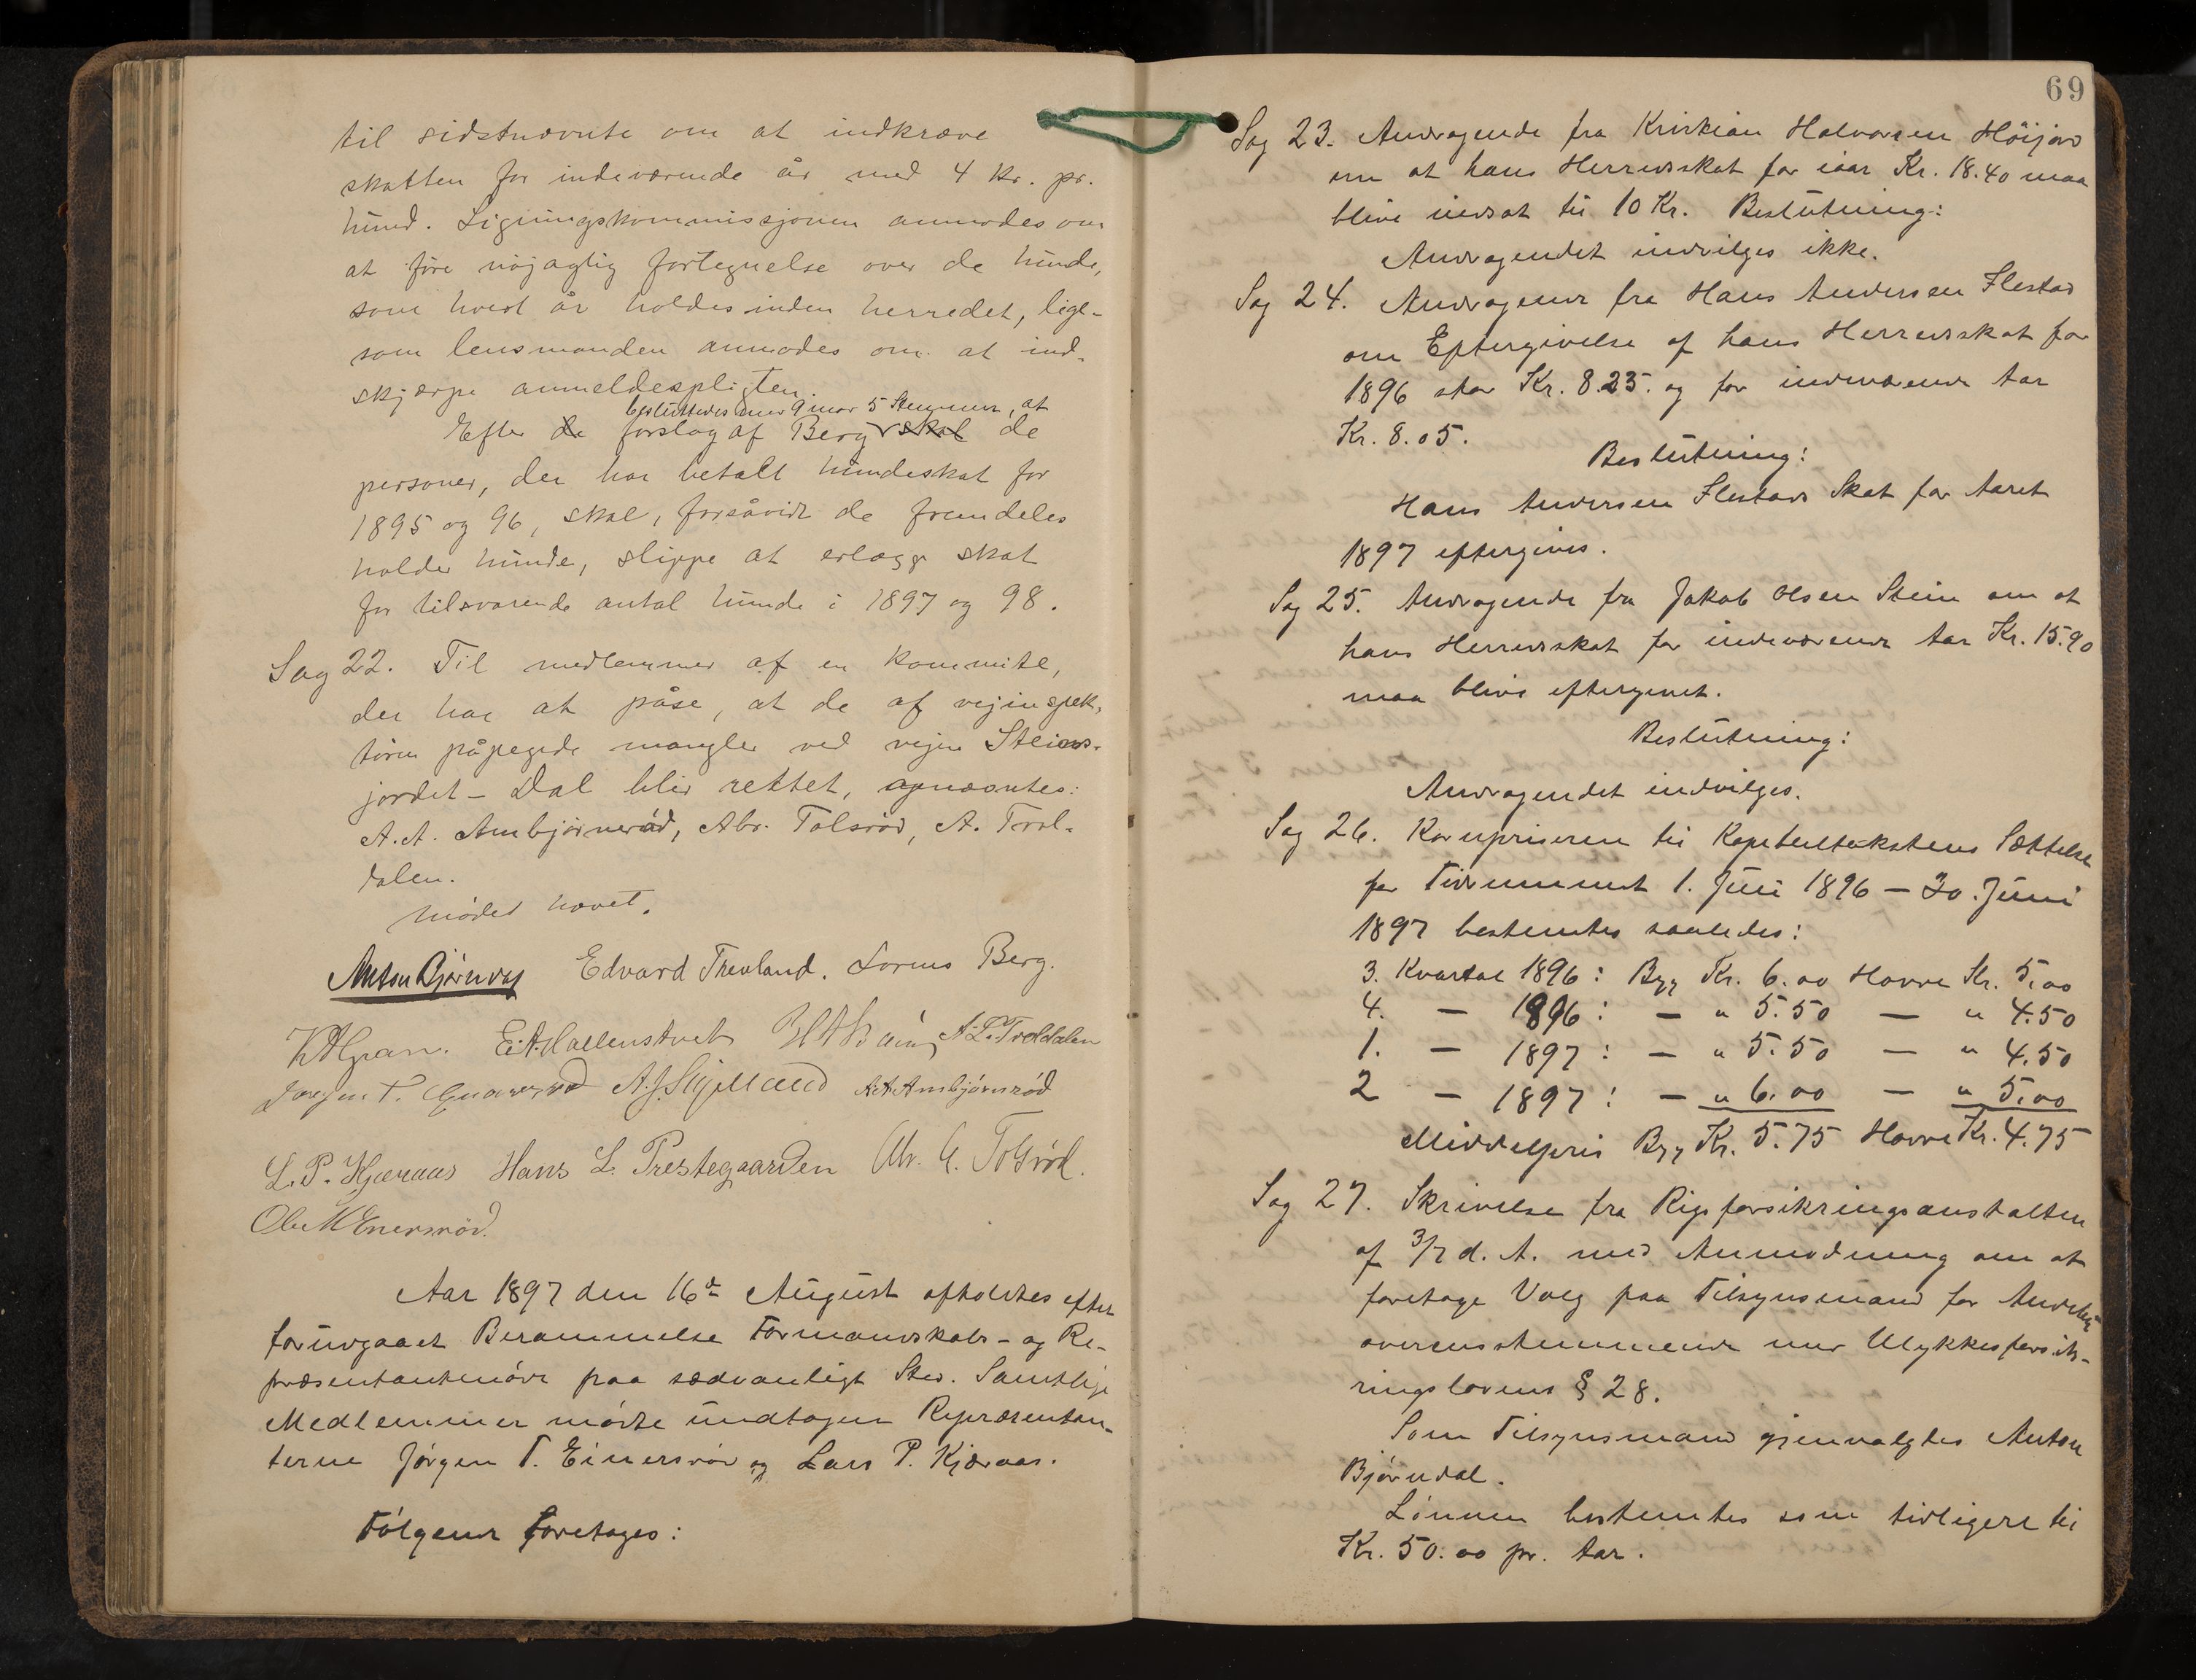 til sidstnævnte om at indkræve
skatten for indeværende år med 4 kr. pr.
hund. Ligningskommissjonen anmodes om
at føre nøjagtig fortegnelse over de hunde,
som hvert år holdes inden herredet, lige-
som lensmanden anmodes om at ind-
skjærpe anmeldespligten.
besluttedes med 9 mod 5 Stemmer, at
Efter de forslag af Berg skal de
personer, der har betalt hundeskat for
1895 og 96, skal, forsåvidt de fremdeles
holder hunde, slippe at erlægge skat
for tilsvarende antal hunde i 1897 og 98.
Sag 22. Til medlemmer af en kommite,
der har at påse, at de af vejinspek-
tøren påpegede mangler ved vejen Steins-
jordet - Dal blir rettet, opnævntes:
A. A. Ambjørnerød, Abr. Tolsrød, A. Trol-
dalen.
Mødet hævet.
Anton Bjørndal Edvard Trevland. Lorens Berg.
E. A. Hallenstvet A. L. Troldalen
Jørgen T. A. J. Skjelland A. A. Ambjørnrød
L. P. Kjæraas Hans L. Prestegaarden Abr. A. Tolsrød.
Ole M Enersrød.
Aar 1897 den 16de August afholdtes efter
forudgaaet Berammelse Formandskabs- og Re-
præsentantmøde paa sædvanligt Sted. Samtlige
Medlemmer mødte undtagen Repræsentan-
terne Jørgen T. Einersrød og Lars P. Kjæraas.
Følgende foretoges:
69
Sag 23. Andragende fra Kristian Halvorsen Höijord
om at hans Herredsskat for iaar Kr. 18.40 maa
blive nedsat til 10 Kr. Beslutning:
Andragendet indvilges ikke.
Sag 24. Andragende fra Hans Andersen Ilestad
om Eftergivelse af hans Herredsskat for
1896 stor Kr. 8.25. og for indeværende Aar
Kr. 8.05.
Beslutning:
Hans Andersen Ilestads Skat for Aaret
1897 eftergives.
Sag 25. Andragende fra Jakob Olsen Stein om at
hans Herredsskat for indeværende Aar Kr. 15.90
maa blive eftergivet.
Beslutning:
Andragendet indvilges.
Sag 26. Kornpriseren til Kapiteltakstens Sættelse
for Tidsrummet 1. Juli 1896 - 30. Juni
1897 bestemtes saaledes:
3. Kvartal 1896: Byg Kr. 6.00 Havre Kr. 5.00
4. - 1896: - " 5.50 - " 4.50
1. - 1897: - " 5.50 - " 4.50
2 - 1897: - " 6.00 - " 5.00
Middelpris Byg Kr. 5.75 Havre Kr. 4.75
Sag 27. Skrivelse fra Rigsforsikringsanstalten
af 3/7 d. A. med Anmodning om at
foretage Valg paa Tilsynsmand for Andebu
overensstemmende med Ulykkesforsik-
ringslovens § 28.
Som Tilsynsmand gjenvalgtes Anton
Bjørndal.
Lønnen bestemtes som tidligere til
Kr. 50.00 pr. Aar.